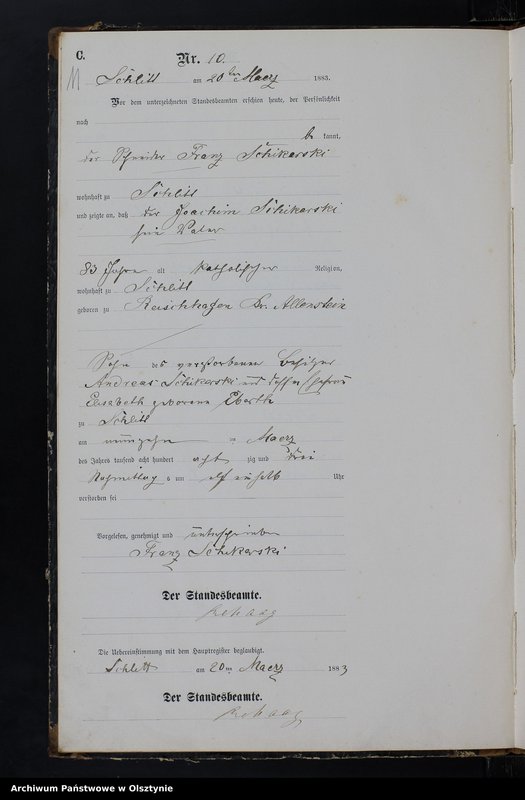 C.
Nr. 10.
11
Schlitt am 20ten Maerz 1883.
Vor dem unterzeichneten Standesbeamten erschien heute, der Persönlichkeit
nach
be kannt,
der Schneider Franz Schikarski
wohnhaft zu Schlitt
und zeigte an, daß der Joachim Schikarski
sein Vater
83 Jahre alt katholischer Religion,
wohnhaft zu Schlitt
geboren zu Kr. Allenstein
Sohn des verstorbenen Besitzer
Andreas Schikarski und dessen Ehefrau
Elisabeth geborene
zu Schlitt
am neunzehn ten Maerz
des Jahres tausend acht hundert acht zig und drei
Nachmittag s um elf einhalb Uhr
verstorben sei
Vorgelesen, genehmigt und unterschrieben
Franz Schikarski
Der Standesbeamte.
Rehaag
Die Uebereinstimmung mit dem Hauptregister beglaubigt.
Schlitt am 20ten Maerz 1883
Der Standesbeamte.
Rehaag
Archiwum Państwowe w Olsztynie